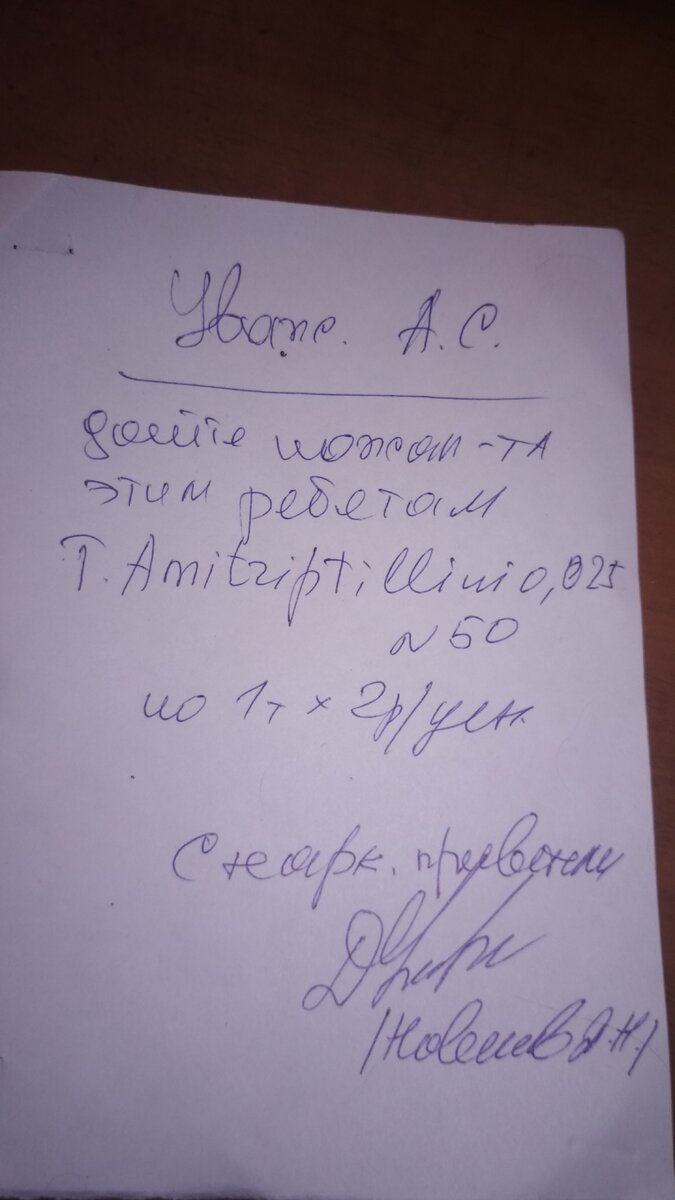 Уваж. А.С.
дайте пожал-та
этим ребятам
T. Amitriptillini 0,025
N 50
по 1т х 2р/день
С нарк. приветом